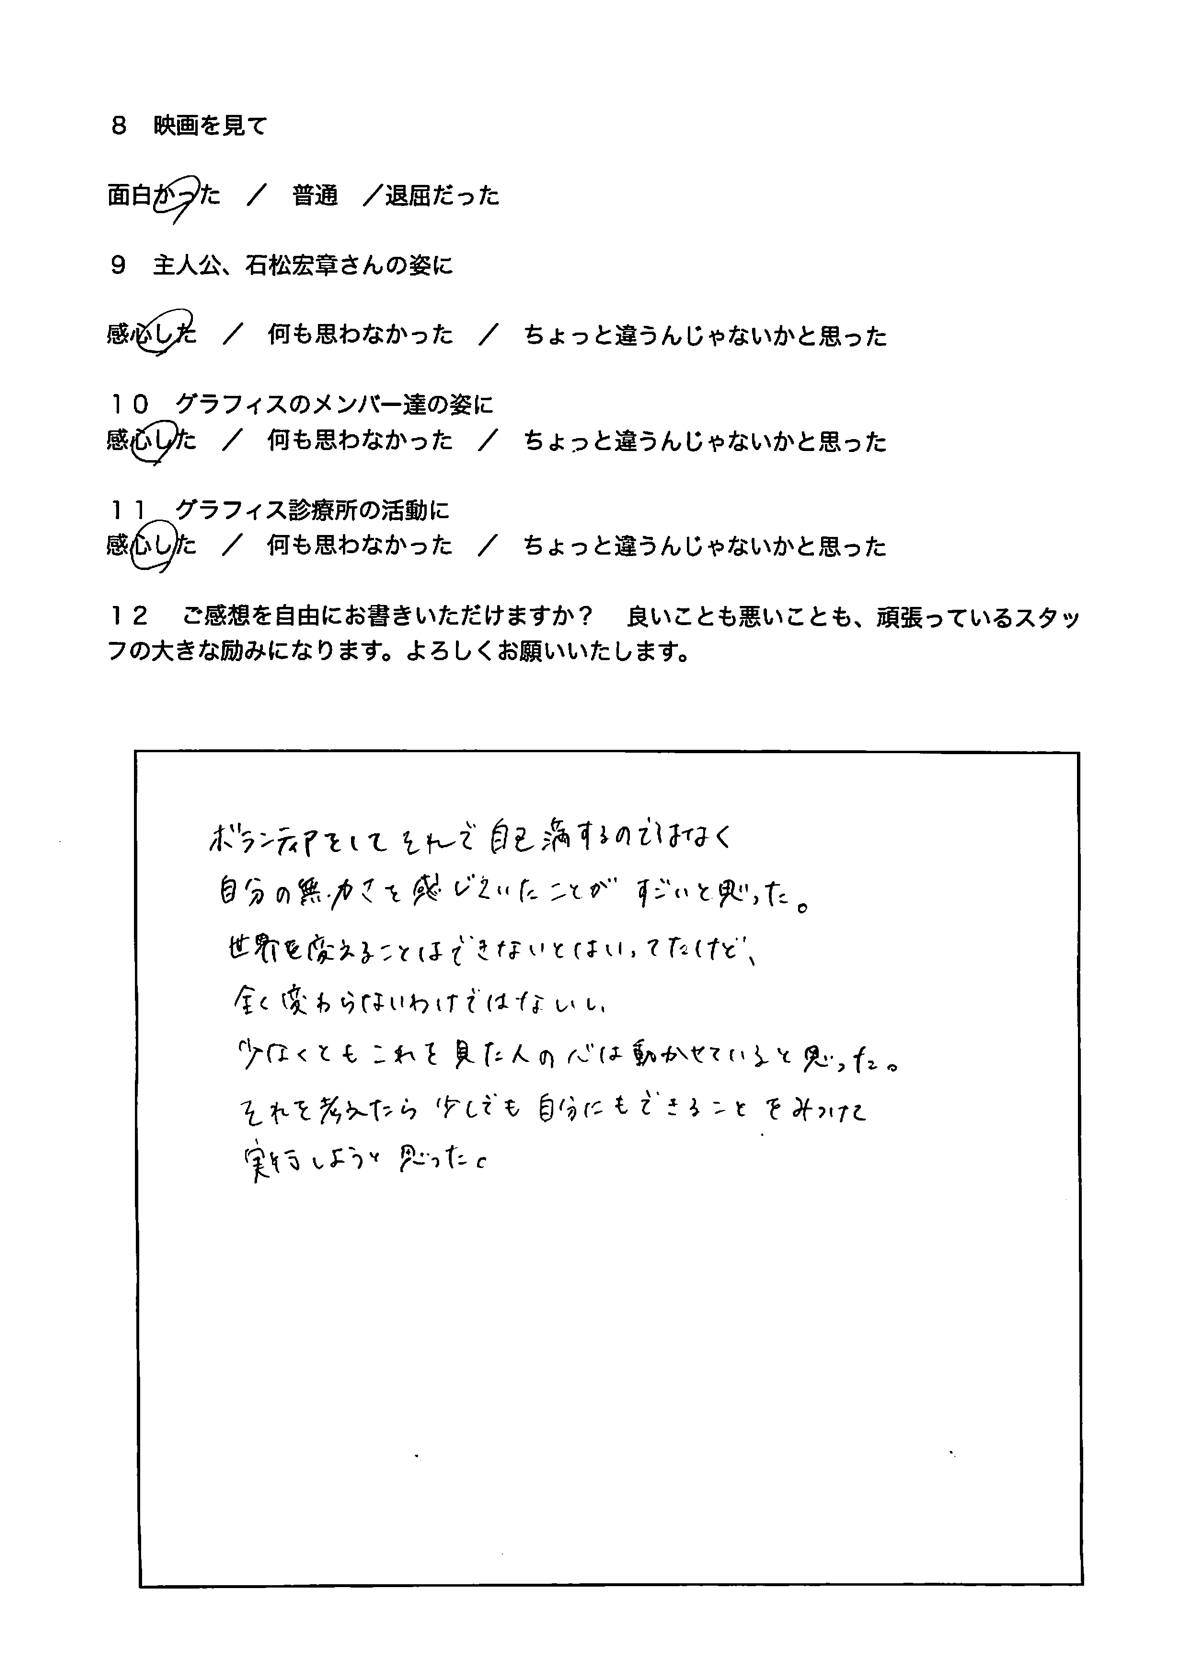 ８　映画を見て
面白かった　／　普通　／退屈だった
９　主人公、石松宏章さんの姿に
感心した　／　何も思わなかった　／　ちょっと違うんじゃないかと思った
１０　グラフィスのメンバー達の姿に
感心した　／　何も思わなかった　／　ちょっと違うんじゃないかと思った
１１　グラフィス診療所の活動に
感心した　／　何も思わなかった　／　ちょっと違うんじゃないかと思った
１２　ご感想を自由にお書きいただけますか？　良いことも悪いことも、頑張っているスタッ
フの大きな励みになります。よろしくお願いいたします。
ボランティアをしてそれで自己満するのではなく
自分の無力さを感じていたことがすごいと思った。
世界を変えることはできないとはいってたけど、
全く変わらないわけではないし、
少なくともこれを見た人の心は動かせていると思った。
それを考えたら少しでも自分にもできることをみつけて
実行しようと思った。